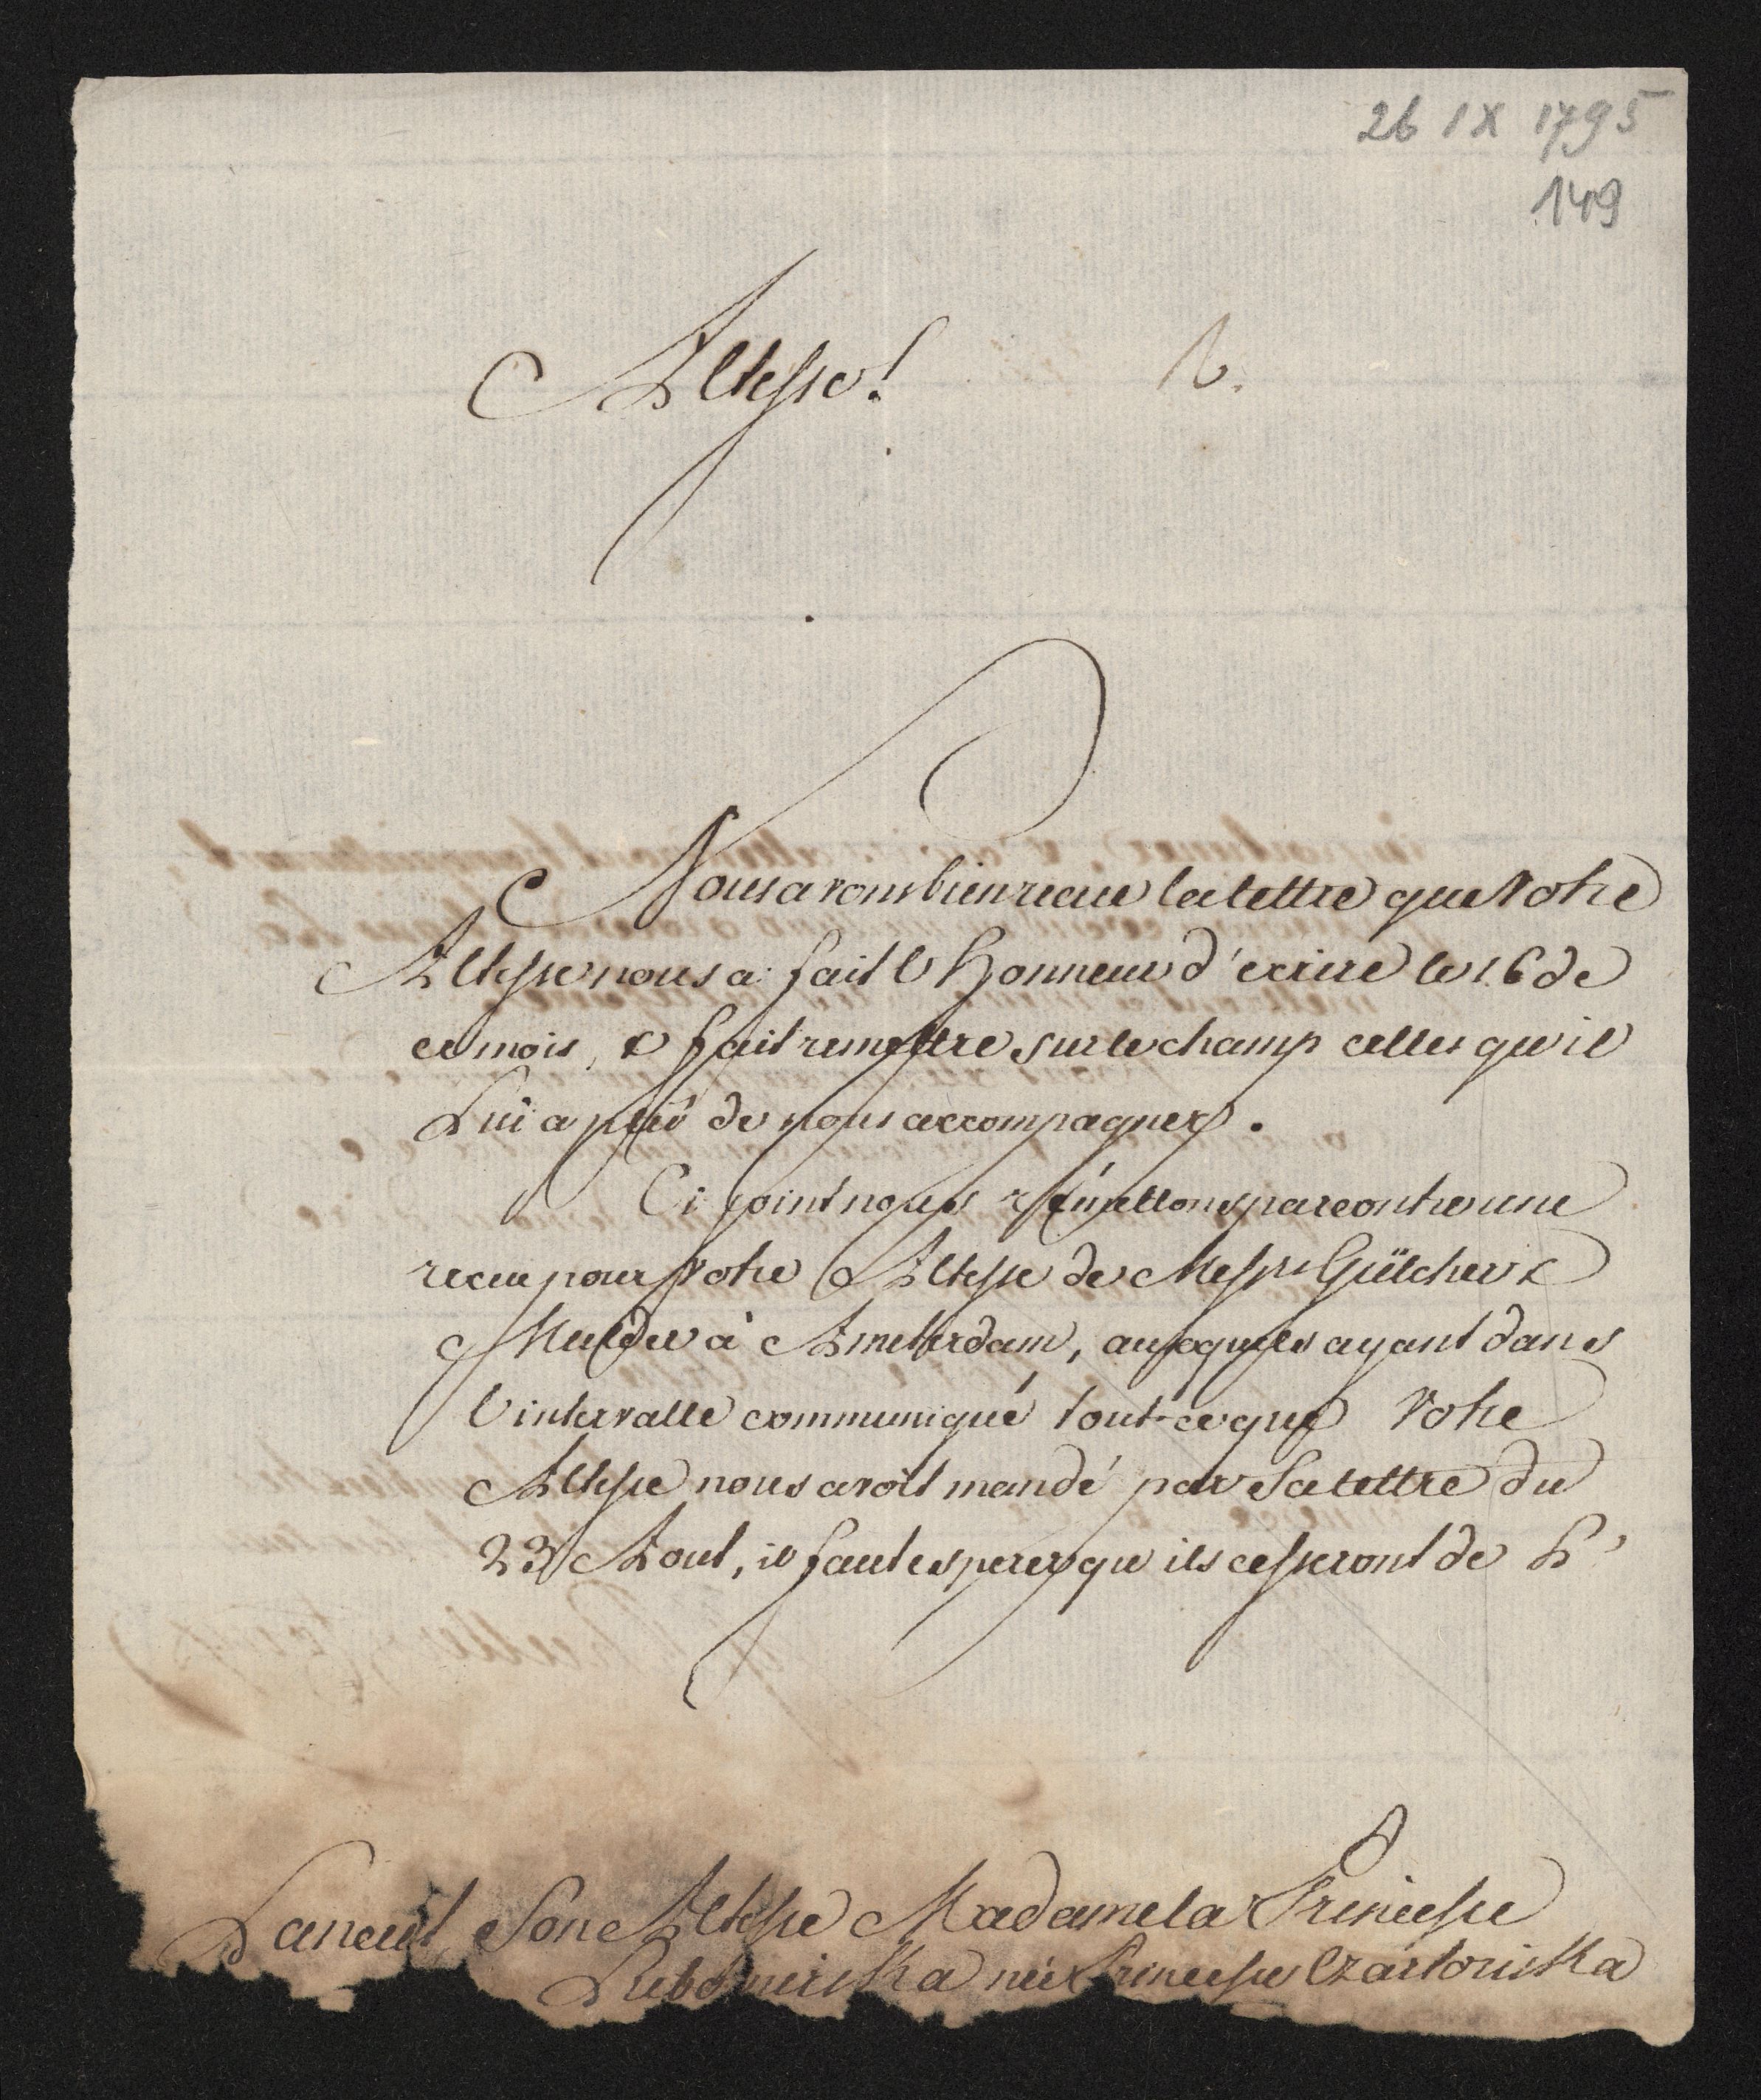 26 IX 1795
149
Altesse!
Nous avons bien recue la lettre que Votre
Altesse nous a fait l'honneur d'ecrire le 16 de
ce mois, & fait remettre sur le champ celles qu'il
Lui a plû de nous accompagner.
Ci joint nous remettons par contre une
recue pour Votre Altesse de Messrs Gülcher &
Mulder à Amsterdam, auxquels ayant dans
l'intervalle communiqué tout-ce que Votre
Altesse nous avoit mandé par Sa lettre du
23 Aout, il faut esperer qu'ils cesseront de L'
Lancut Son Altesse Madame la Princesse
Lubomirska née Princesse Czartoriska